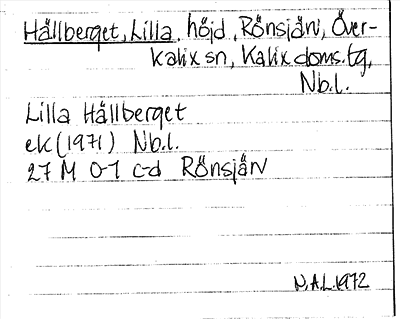 Hållberget, Lilla, höjd, Rönsjärv, Över-
kalix sn, Kalix doms.tg,
Nb.l.
Lilla Hållberget
ek (1971) Nb.l.
27 M 0-1 c-d Rönsjärv
N.A.L. 1972